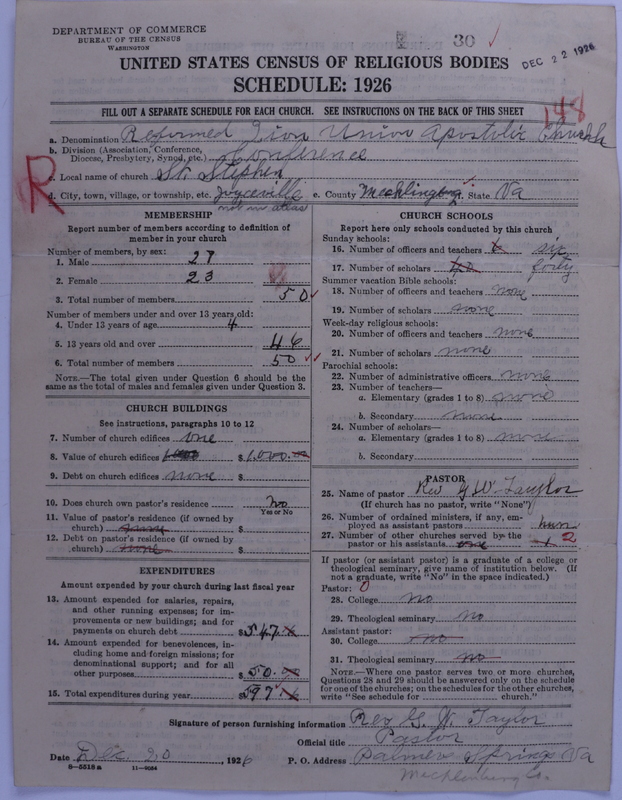 DEPARTMENT OF COMMERCE
BUREAU OF THE CENSUS
WASHINGTON
30
DEC 22 1926
UNITED STATES CENSUS OF RELIGIOUS BODIES
SCHEDULE: 1926
FILL OUT A SEPARATE SCHEDULE FOR EACH CHURCH. SEE INSTRUCTIONS ON THE BACK OF THIS SHEET
148
a. Denomination Reformed Zion Union Apostolic Church
b. Division (Association, Conference, Diocese, Presbytery, Synod, etc.) Conference
R
c. Local name of church St. Stephen
d. City, town, village, or township, etc. Joyceville e. County Mecklingburg f. State Va
not in atlas
MEMBERSHIP
Report number of members according to definition of member in your church
Number of members, by sex:
1. Male 27
2. Female 23
3. Total number of members 50
Number of members under and over 13 years old:
4. Under 13 years of age 4
5. 13 years old and over 46
6. Total number of members 50
NOTE.—The total given under Question 6 should be the same as the total of males and females given under Question 3.
CHURCH BUILDINGS
See instructions, paragraphs 10 to 12
7. Number of church edifices one
8. Value of church edifices $ 1,000.00
9. Debt on church edifices none $
10. Does church own pastor's residence no
Yes or No
11. Value of pastor's residence (if owned by church) $
12. Debt on pastor's residence (if owned by church) none $
EXPENDITURES
Amount expended by your church during last fiscal year
13. Amount expended for salaries, repairs, and other running expenses; for improvements or new buildings; and for payments on church debt $ 547
14. Amount expended for benevolences, including home and foreign missions; for denominational support; and for all other purposes $ 50
15. Total expenditures during year $ 597
CHURCH SCHOOLS
Report here only schools conducted by this church
Sunday schools:
16. Number of officers and teachers 6 six
17. Number of scholars 40 forty
Summer vacation Bible schools:
18. Number of officers and teachers none
19. Number of scholars none
Week-day religious schools:
20. Number of officers and teachers none
21. Number of scholars none
Parochial schools:
22. Number of administrative officers none
23. Number of teachers—
a. Elementary (grades 1 to 8) none
b. Secondary none
24. Number of scholars—
a. Elementary (grades 1 to 8) none
b. Secondary
PASTOR
25. Name of pastor Rev G W Taylor
(If church has no pastor, write "None")
26. Number of ordained ministers, if any, employed as assistant pastors
27. Number of other churches served by the pastor or his assistants one 2
If pastor (or assistant pastor) is a graduate of a college or theological seminary, give name of institution below. (If not a graduate, write "No" in the space indicated.)
Pastor: 0
28. College no
29. Theological seminary no
Assistant pastor:
30. College no
31. Theological seminary no
NOTE.—Where one pastor serves two or more churches, Questions 28 and 29 should be answered only on the schedule for one of the churches; on the schedules for the other churches, write "See schedule for church."
Signature of person furnishing information Rev G. W. Taylor
Official title Pastor
Date Dec 20, 1926 P. O. Address Palmers Springs Va
Mecklenburg Co.
8—5518 a 11—9084